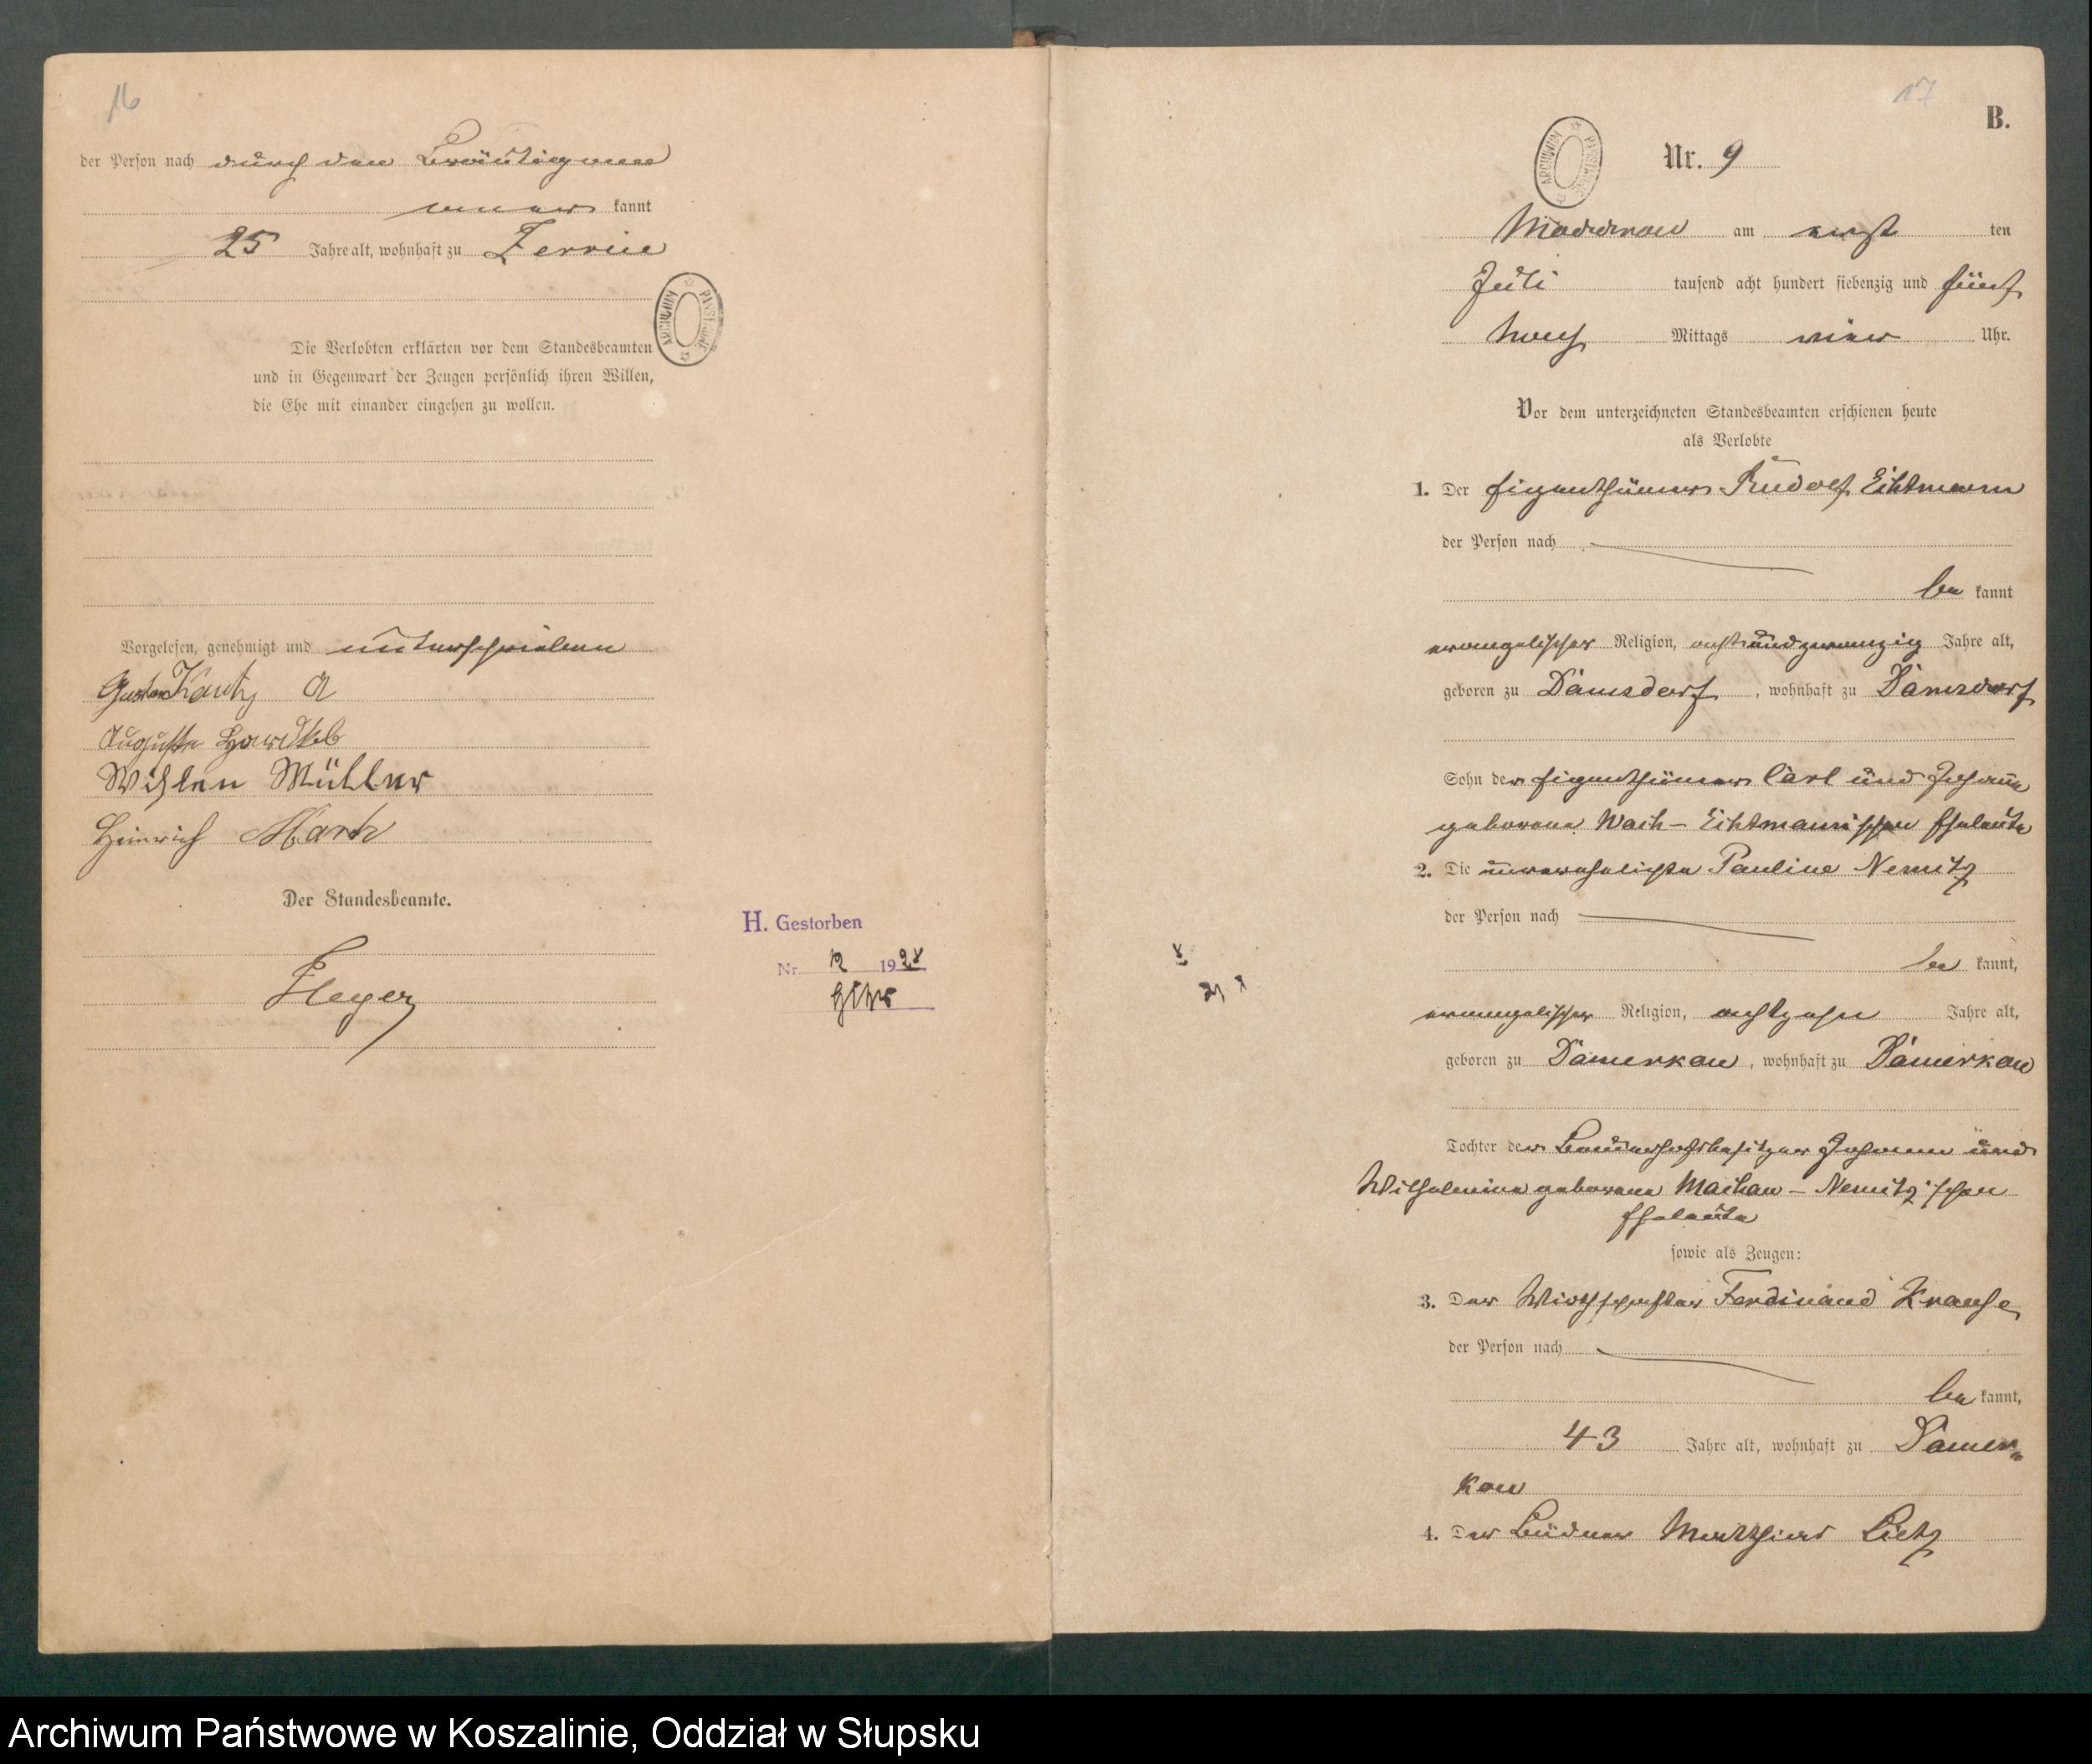 16
der Person nach durch den Bräutigam
aner kannt
25 Jahre alt, wohnhaft zu Zerrin
ARCHIWUM PAŃSTWOWE
Die Verlobten erklärten vor dem Standesbeamten
und in Gegenwart der Zeugen persönlich ihren Willen,
die Ehe mit einander eingehen zu wollen.
Vorgelesen, genehmigt und unterschrieben
Gustav Kautz
Auguste
Müller
Heinrich
Der Standesbeamte.
H. Gestorben
Nr. 12 1928
17
B.
ARCHIWUM PAŃSTWOWE
Nr. 9
am erst ten
Juli tausend acht hundert siebenzig und fünf
Nach Mittags vier Uhr.
Vor dem unterzeichneten Standesbeamten erschienen heute
als Verlobte
1. Der Eigenthümer Rudolf Eiktmann
der Person nach
be kannt
evangelischer Religion, achtundzwanzig Jahre alt,
geboren zu Damsdorf, wohnhaft zu Damsdorf
Sohn der Eigenthümer Carl und Johanna
geborene Wach- Eiktmannschen Eheleute
2. Die unverehelichte Pauline Nemitz
der Person nach
be kannt,
evangelischer Religion, achtzehn Jahre alt,
geboren zu Damerkow, wohnhaft zu Damerkow
Tochter der Bauerhofsbesitzer Johann und
Wilhelmine geborene Machan - Nemitz'schen
Eheleute
sowie als Zeugen:
3. Der Wirthschafter Ferdinand Krause
der Person nach
be kannt,
43 Jahre alt, wohnhaft zu Damer-
kow
4. Der Büdner Matthias Lietz
Archiwum Państwowe w Koszalinie, Oddział w Słupsku